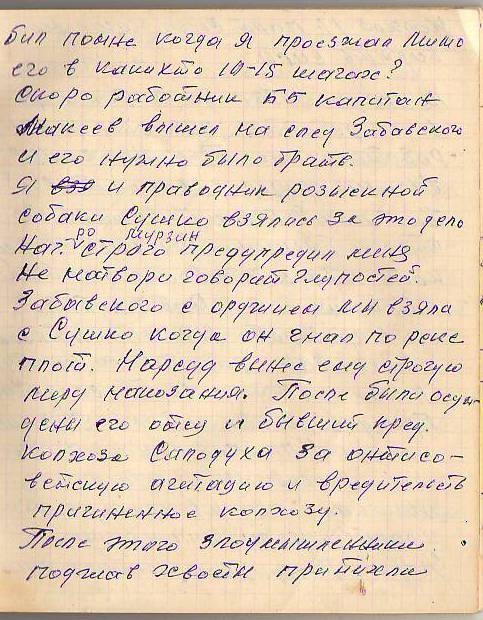 бил помне когда я проезжал мимо
его в какихто 10-15 шагах?
скоро работник ББ капитан
Макеев вышел на след Забавского
и его нужно было брать.
Я и праводник розыскной
собаки Сушко взялись за это дело
Нат. строго предупредил меня
ро мурзин
не натвори говорит глупостей.
Забавского с оружием мы взяли
с Сушко когда он гнал по реке
плот. Нарсуд вынес ему строгую
меру наказания. После были осуж
дены его отец и бывший пред.
колхоза Саподуха за антисо-
ветскую агитацию и вредительств
причиненное колхозу.
После этого злоумышленники
поджав хвосты притихли